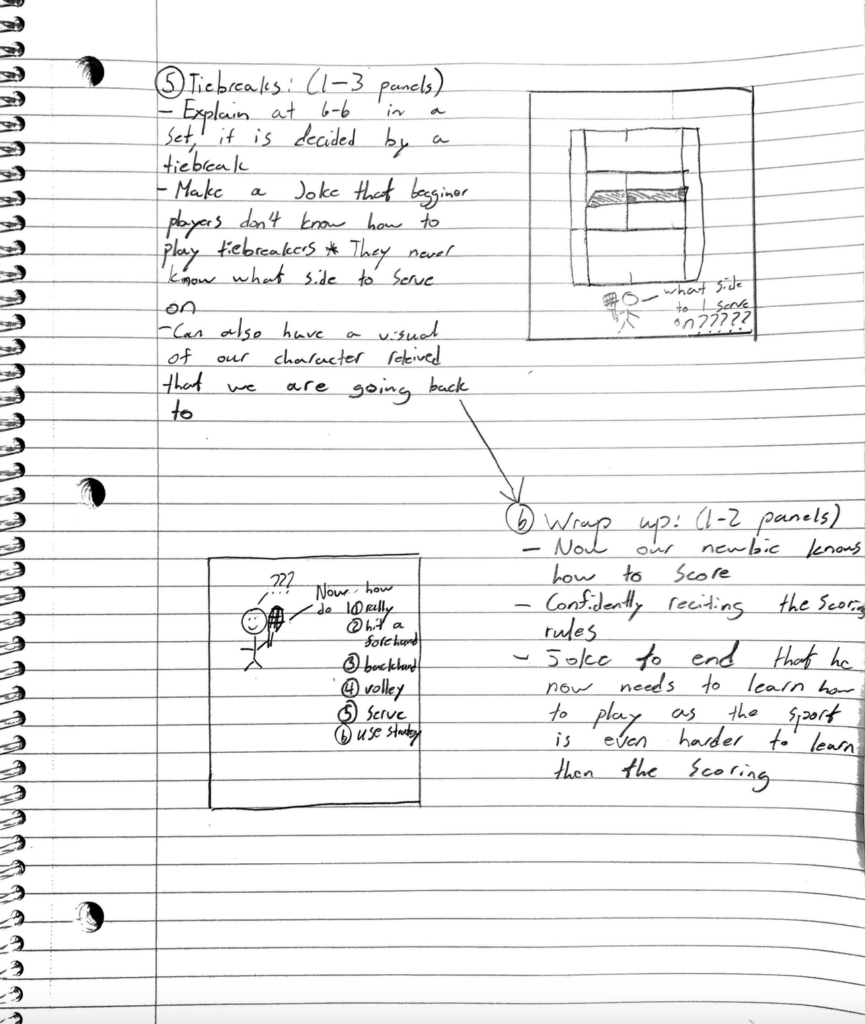 ⑤ Tiebreaks: (1-3 panels)
- Explain at 6-6 in a
set, it is decided by a
tiebreak
- Make a Joke that begginer
players don't know how to
play tiebreakers * They never
know what side to serve
on
- Can also have a visual
of our character
that we are going back
to
what side
to I serve
on?????
⑥ Wrap up: (1-2 panels)
- Now our newbie knows
how to score
- Confidently reciting the scoring
rules
- Joke to end that he
now needs to learn how
to play as the sport
is even harder to learn
then the scoring
???
Now how
do I ① rally
② hit a
forehand
③ backhand
④ volley
⑤ serve
⑥ use strategy